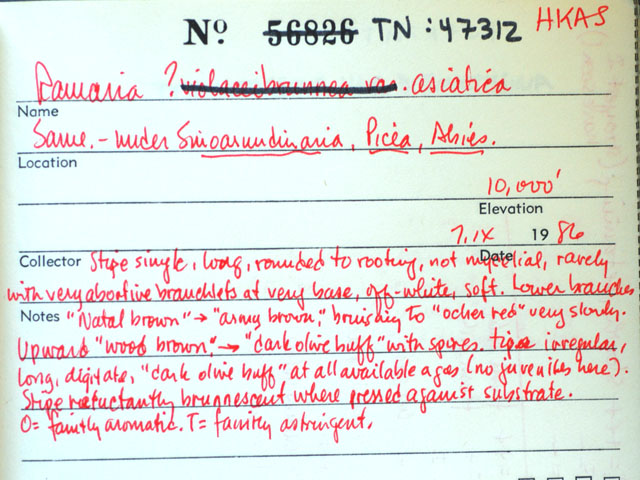 Nº 56826 TN: 47312 HKAS
Ramaria ? violaceibrunnea var. asiatica
Name
Same. - under Sinoarundinaria, Picea, Abies.
Location
10,000'
Elevation
7. IX 1986
Collector Date
Stipe single, long, rounded to rooting, not mycelial, rarely
with very abortive branchlets at very base, off-white, soft. Lower branches
Notes "Natal brown" → "army brown", bruising to "ocher red" very slowly.
Upward "wood brown" → "dark olive buff" with spores. tips irregular,
long, digitate, "dark olive buff" at all available ages (no juveniles here).
Stipe reluctantly brunnescent where pressed against substrate.
O = faintly aromatic. T = faintly astringent.